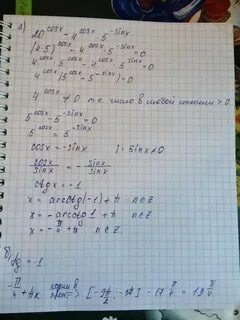 а)
20^cosx = 4^cosx · 5^-sinx
(4·5)^cosx - 4^cosx · 5^-sinx = 0
4^cosx · 5^cosx - 4^cosx · 5^-sinx = 0
4^cosx (5^cosx - 5^-sinx) = 0
4^cosx ≠ 0 т.к. число в любой степени > 0
5^cosx - 5^-sinx = 0
5^cosx = 5^-sinx
cosx = -sinx | : sinx ≠ 0
cosx/sinx = - sinx/sinx
ctgx = -1
x = arcctg(-1) + π n∈Z
x = -arcctg 1 + π n∈Z
x = -π/4 + π n∈Z
б)
tg = -1
-π/4 + πk корни в [-9π/2; -3π]